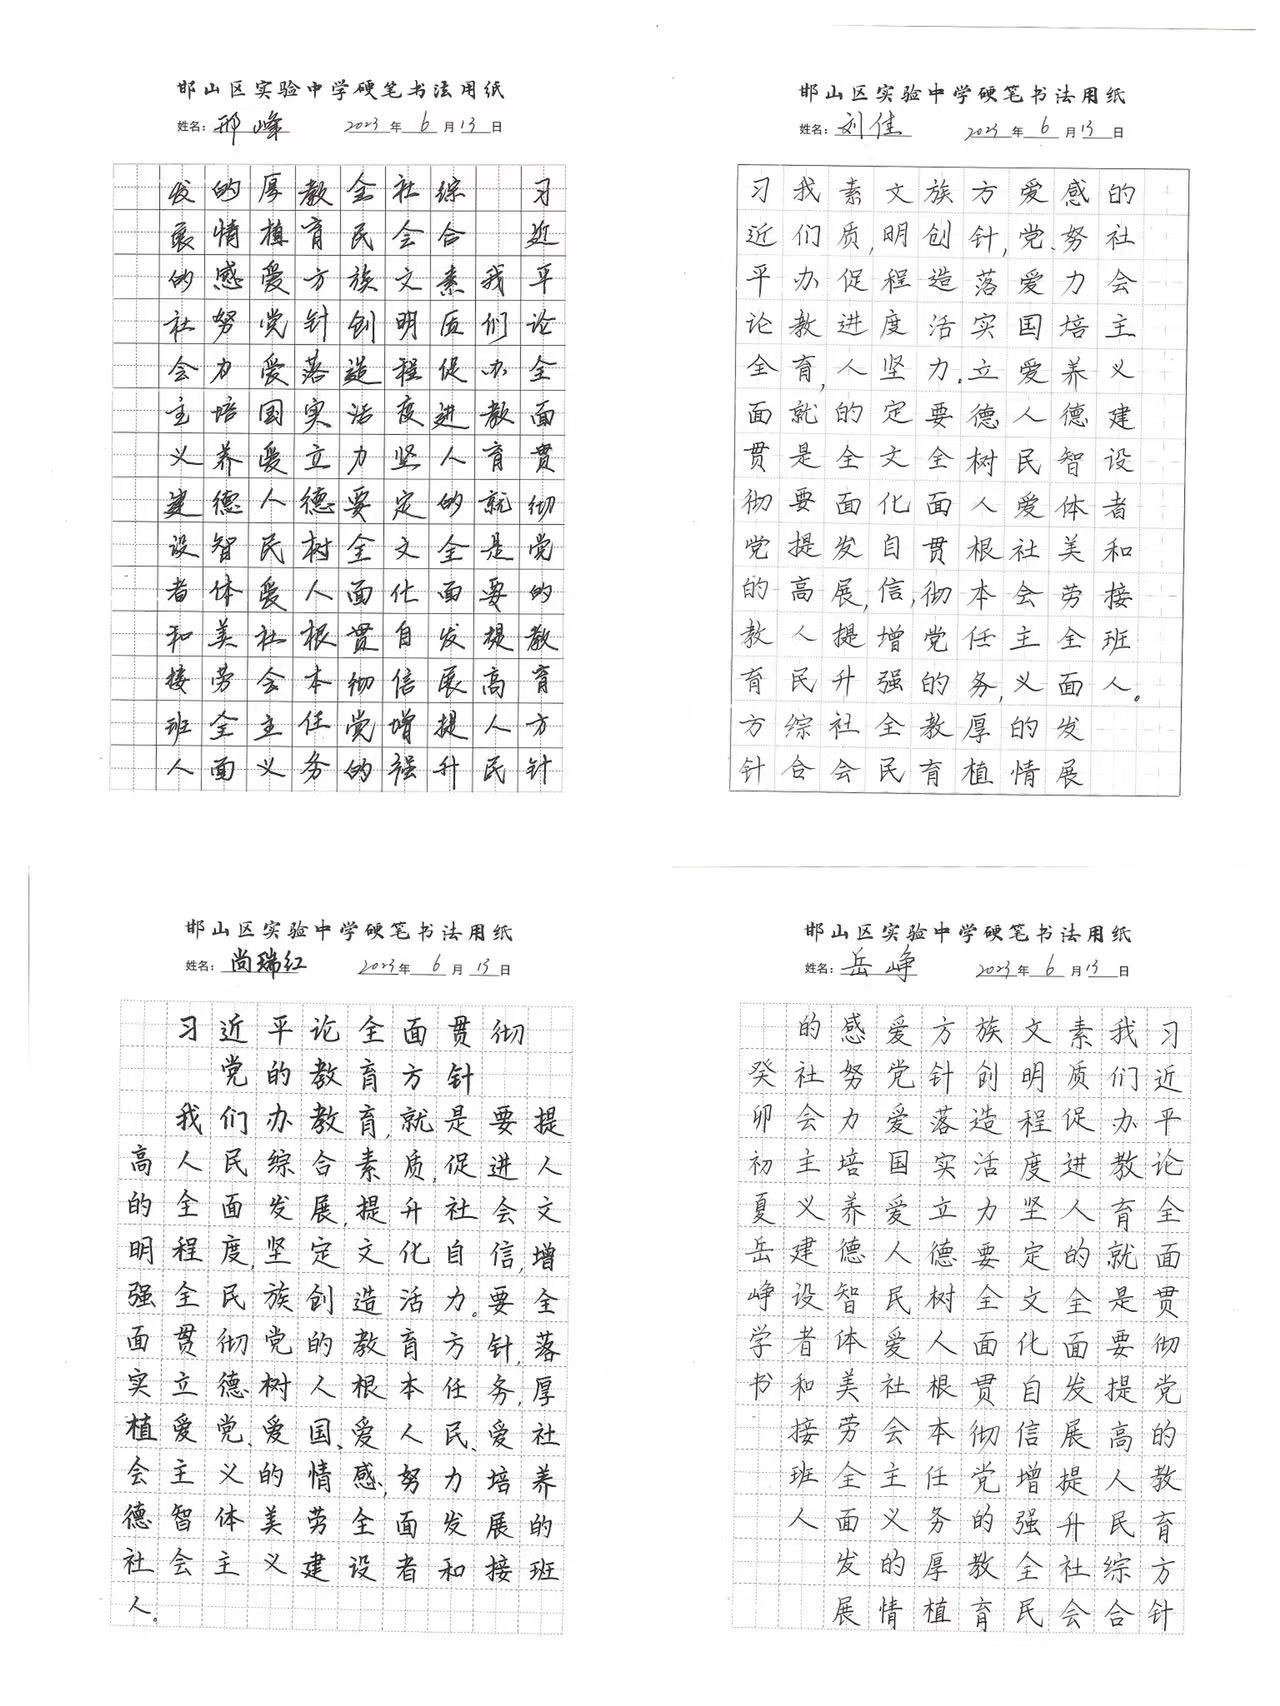 邯山区实验中学硬笔书法用纸
姓名：邢峰 2023年6月13日
习近平论全面贯彻党的教育方针
我们办教育就是要提高人民
综合素质促进人的全面发展提升
社会文明程度坚定文化自信增强
全民族创造活力要全面贯彻党的
教育方针落实立德树人根本任务
厚植爱党爱国爱人民爱社会主义
的情感努力培养德智体美劳全面
发展的社会主义建设者和接班人
邯山区实验中学硬笔书法用纸
姓名：刘佳 2023年6月13日
习近平论全面贯彻党的教育方针
我们办教育,就是要提高人民综合
素质,促进人的全面发展,提升社会
文明程度坚定文化自信,增强全民
族创造活力.要全面贯彻党的教育
方针,落实立德树人根本任务,厚植
爱党、爱国爱人民爱社会主义的情
感努力培养德智体美劳全面发展
的社会主义建设者和接班人。
邯山区实验中学硬笔书法用纸
姓名：尚瑞红 2023年6月13日
习近平论全面贯彻
党的教育方针
我们办教育,就是要提
高人民综合素质,促进人
的全面发展,提升社会文
明程度,坚定文化自信,增
强全民族创造活力。要全
面贯彻党的教育方针,落
实立德树人根本任务,厚
植爱党、爱国、爱人民、爱社
会主义的情感,努力培养
德智体美劳全面发展的
社会主义建设者和接班
人。
邯山区实验中学硬笔书法用纸
姓名：岳峥 2023年6月13日
习近平论全面贯彻党的教育方针
我们办教育就是要提高人民综合
素质促进人的全面发展提升社会
文明程度坚定文化自信增强全民
族创造活力要全面贯彻党的教育
方针落实立德树人根本任务厚植
爱党爱国爱人民爱社会主义的情
感努力培养德智体美劳全面发展
的社会主义建设者和接班人
癸卯初夏岳峥学书